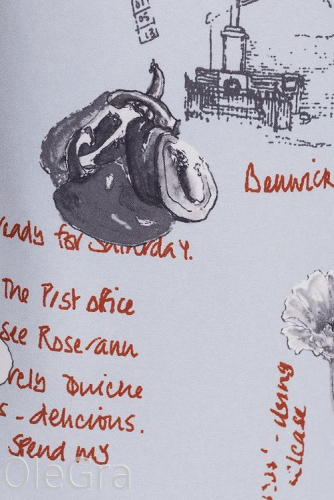 01
05
13
Berwick
ready for Saturday.
The Post office
see Roseann
rely Quiche
s - delicious.
spend my
- using
OleGra